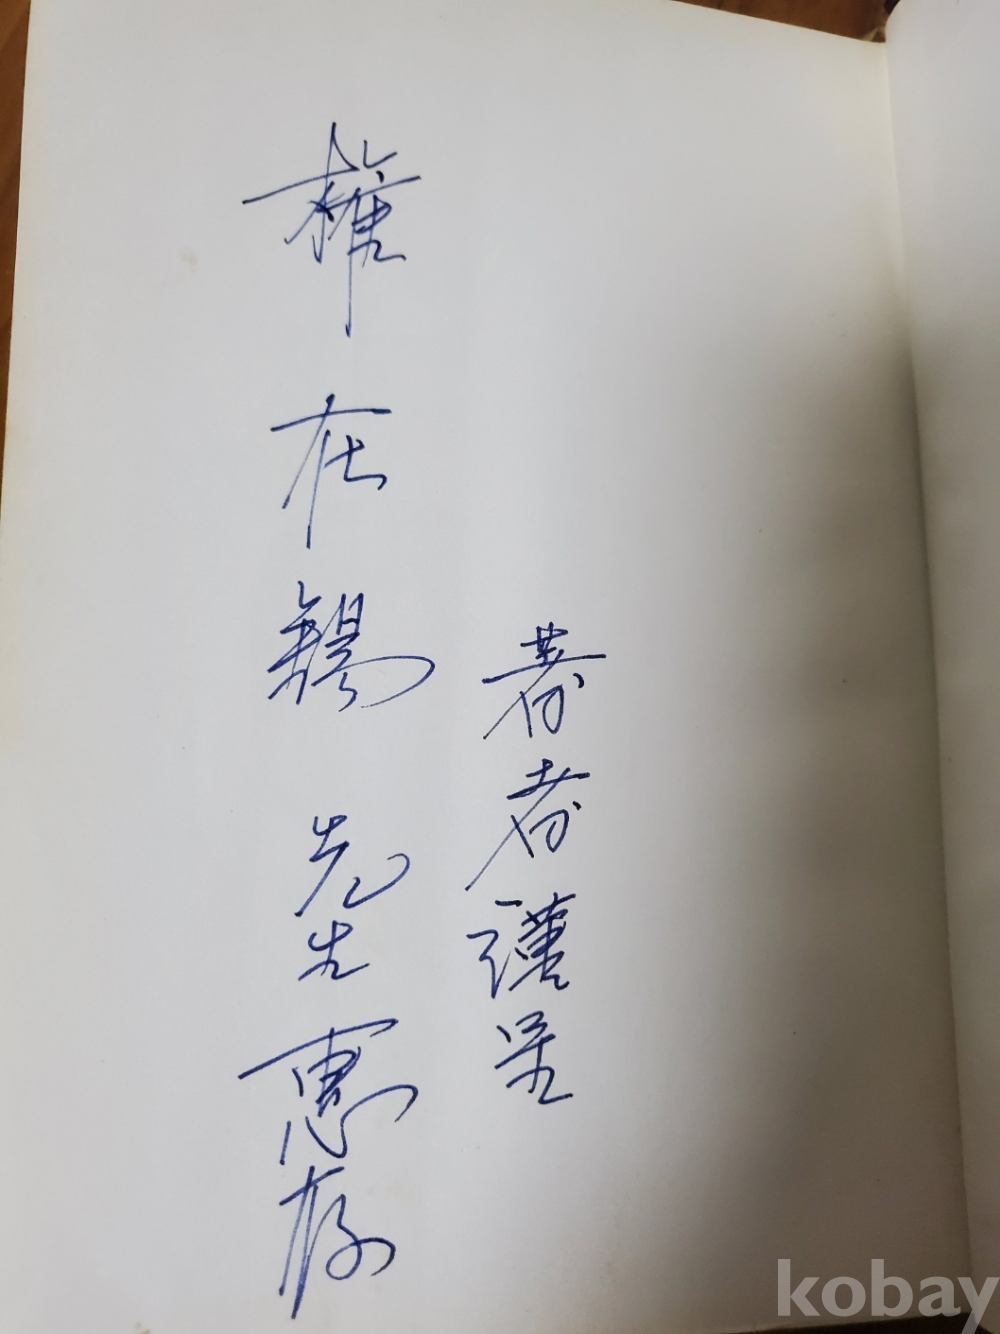 權在錫 先生 惠存
著者謹呈
kobay